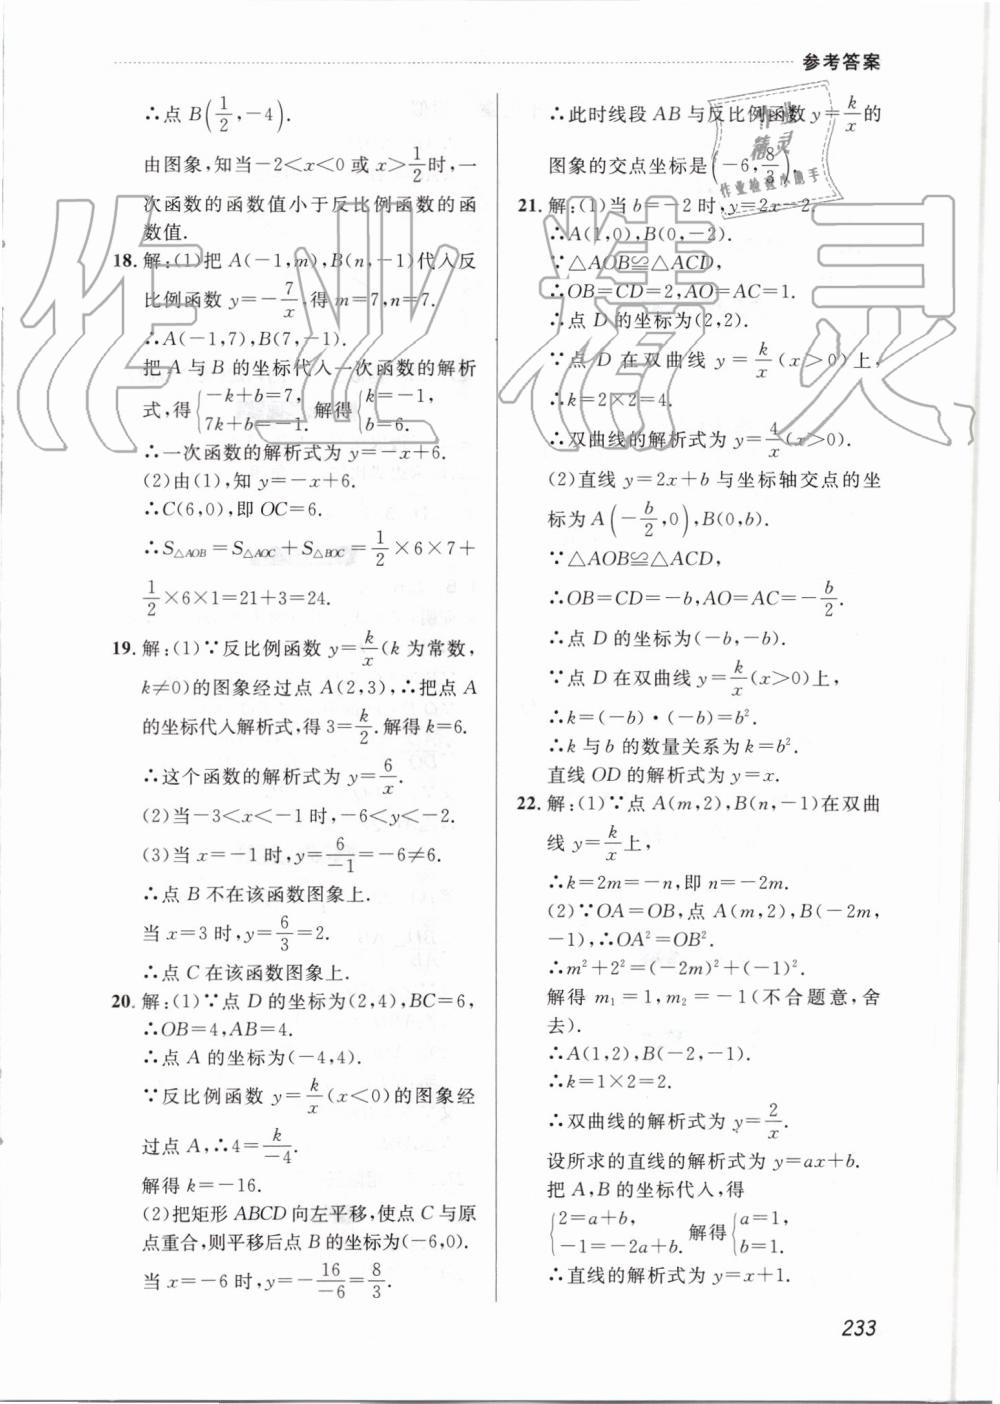 参考答案
∴点 B(1/2,-4).
由图象,知当-2<x<0或x>1/2时,一
次函数的函数值小于反比例函数的函
数值.
18. 解:(1)把 A(-1,m),B(n,-1)代入反
比例函数 y=-7/x,得 m=7,n=7.
∴A(-1,7),B(7,-1).
把 A 与 B 的坐标代入一次函数的解析
式,得{-k+b=7, 7k+b=-1. 解得{k=-1, b=6.
∴一次函数的解析式为 y=-x+6.
(2)由(1),知 y=-x+6.
∴C(6,0),即 OC=6.
∴S△AOB=S△AOC+S△BOC=1/2×6×7+
1/2×6×1=21+3=24.
19. 解:(1)∵反比例函数 y=k/x(k 为常数,
k≠0)的图象经过点 A(2,3),∴把点 A
的坐标代入解析式,得 3=k/2.解得 k=6.
∴这个函数的解析式为 y=6/x.
(2)当-3<x<-1时,-6<y<-2.
(3)当 x=-1时,y=6/-1=-6≠6.
∴点 B 不在该函数图象上.
当 x=3时,y=6/3=2.
∴点 C 在该函数图象上.
20. 解:(1)∵点 D 的坐标为(2,4),BC=6,
∴OB=4,AB=4.
∴点 A 的坐标为(-4,4).
∵反比例函数 y=k/x(x<0)的图象经
过点 A,∴4=k/-4.
解得 k=-16.
(2)把矩形 ABCD 向左平移,使点 C 与原
点重合,则平移后点 B 的坐标为(-6,0).
当 x=-6时,y=-16/-6=8/3.
∴此时线段 AB 与反比例函数 y=k/x的
图象的交点坐标是(-6,8/3).
21. 解:(1)当 b=-2时,y=2x-2.
∴A(1,0),B(0,-2).
∵△AOB≌△ACD,
∴OB=CD=2,AO=AC=1.
∴点 D 的坐标为(2,2).
∵点 D 在双曲线 y=k/x(x>0)上,
∴k=2×2=4.
∴双曲线的解析式为 y=4/x(x>0).
(2)直线 y=2x+b 与坐标轴交点的坐
标为 A(-b/2,0),B(0,b).
∵△AOB≌△ACD,
∴OB=CD=-b,AO=AC=-b/2.
∴点 D 的坐标为(-b,-b).
∵点 D 在双曲线 y=k/x(x>0)上,
∴k=(-b)·(-b)=b².
∴k 与 b 的数量关系为 k=b².
直线 OD 的解析式为 y=x.
22. 解:(1)∵点 A(m,2),B(n,-1)在双曲
线 y=k/x上,
∴k=2m=-n,即 n=-2m.
(2)∵OA=OB,点 A(m,2),B(-2m,
-1),∴OA²=OB².
∴m²+2²=(-2m)²+(-1)².
解得 m₁=1,m₂=-1(不合题意,舍
去).
∴A(1,2),B(-2,-1).
∴k=1×2=2.
∴双曲线的解析式为 y=2/x.
设所求的直线的解析式为 y=ax+b.
把 A,B 的坐标代入,得
{2=a+b, -1=-2a+b. 解得{a=1, b=1.
∴直线的解析式为 y=x+1.
233
作业精灵
作业
精灵
作业检查小助手